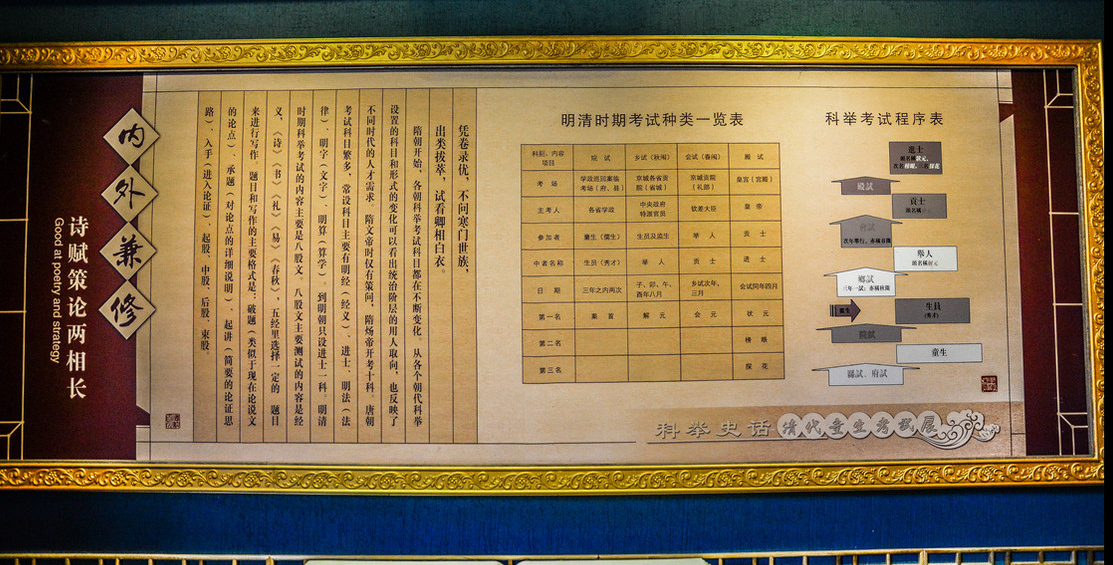 内外兼修
诗赋策论两相长
Good at poetry and strategy
凭卷录优，不问寒门世族，
出类拔萃，试看卿相白衣。
隋朝开始，各朝科举考试科目都在不断变化。从各个朝代科举
设置的科目和形式的变化可以看出统治阶层的用人取向，也反映了
不同时代的人才需求。隋文帝时仅有策问，隋炀帝开考十科。唐朝
考试科目繁多，常设科目主要有明经（经义）、进士、明法（法
律）、明字（文字）、明算（算学）。到明朝只设进士一科。明清
时期科举考试的内容主要是八股文。八股文主要测试的内容是经
义，《诗》《书》《礼》《易》《春秋》，五经里选择一定的 题目
来进行写作。题目和写作的主要格式是：破题（类似于现在论说文
的论点）、承题（对论点的详细说明）、起讲（简要的论证思
路）、入手（进入论证）、起股、中股、后股、束股。
明清时期考试种类一览表
科别、内容 项目 院试 乡试（秋闱） 会试（春闱） 殿试
考场 学政巡回案临考场（府、县） 京城各省贡院（省城） 京城贡院（礼部） 皇宫（宫殿）
主考人 各省学政 中央政府特派官员 钦差大臣 皇帝
参加者 童生（儒生） 生员及监生 举人 贡士
中者名称 生员（秀才） 举人 贡士 进士
日期 三年之内两次 子、卯、午、酉年八月 乡试次年，三月 会试同年四月
第一名 案首 解元 会元 状元
第二名 榜眼
第三名 探花
科举考试程序表
進士
頭名稱狀元，
殿試
貢士
會試
次年舉行，亦稱春闈
舉人
頭名稱解元
鄉試
三年一試；亦稱秋闈
生員
(秀才)
監生
院試
童生
縣試、府試
科举史话
清代童生考试展